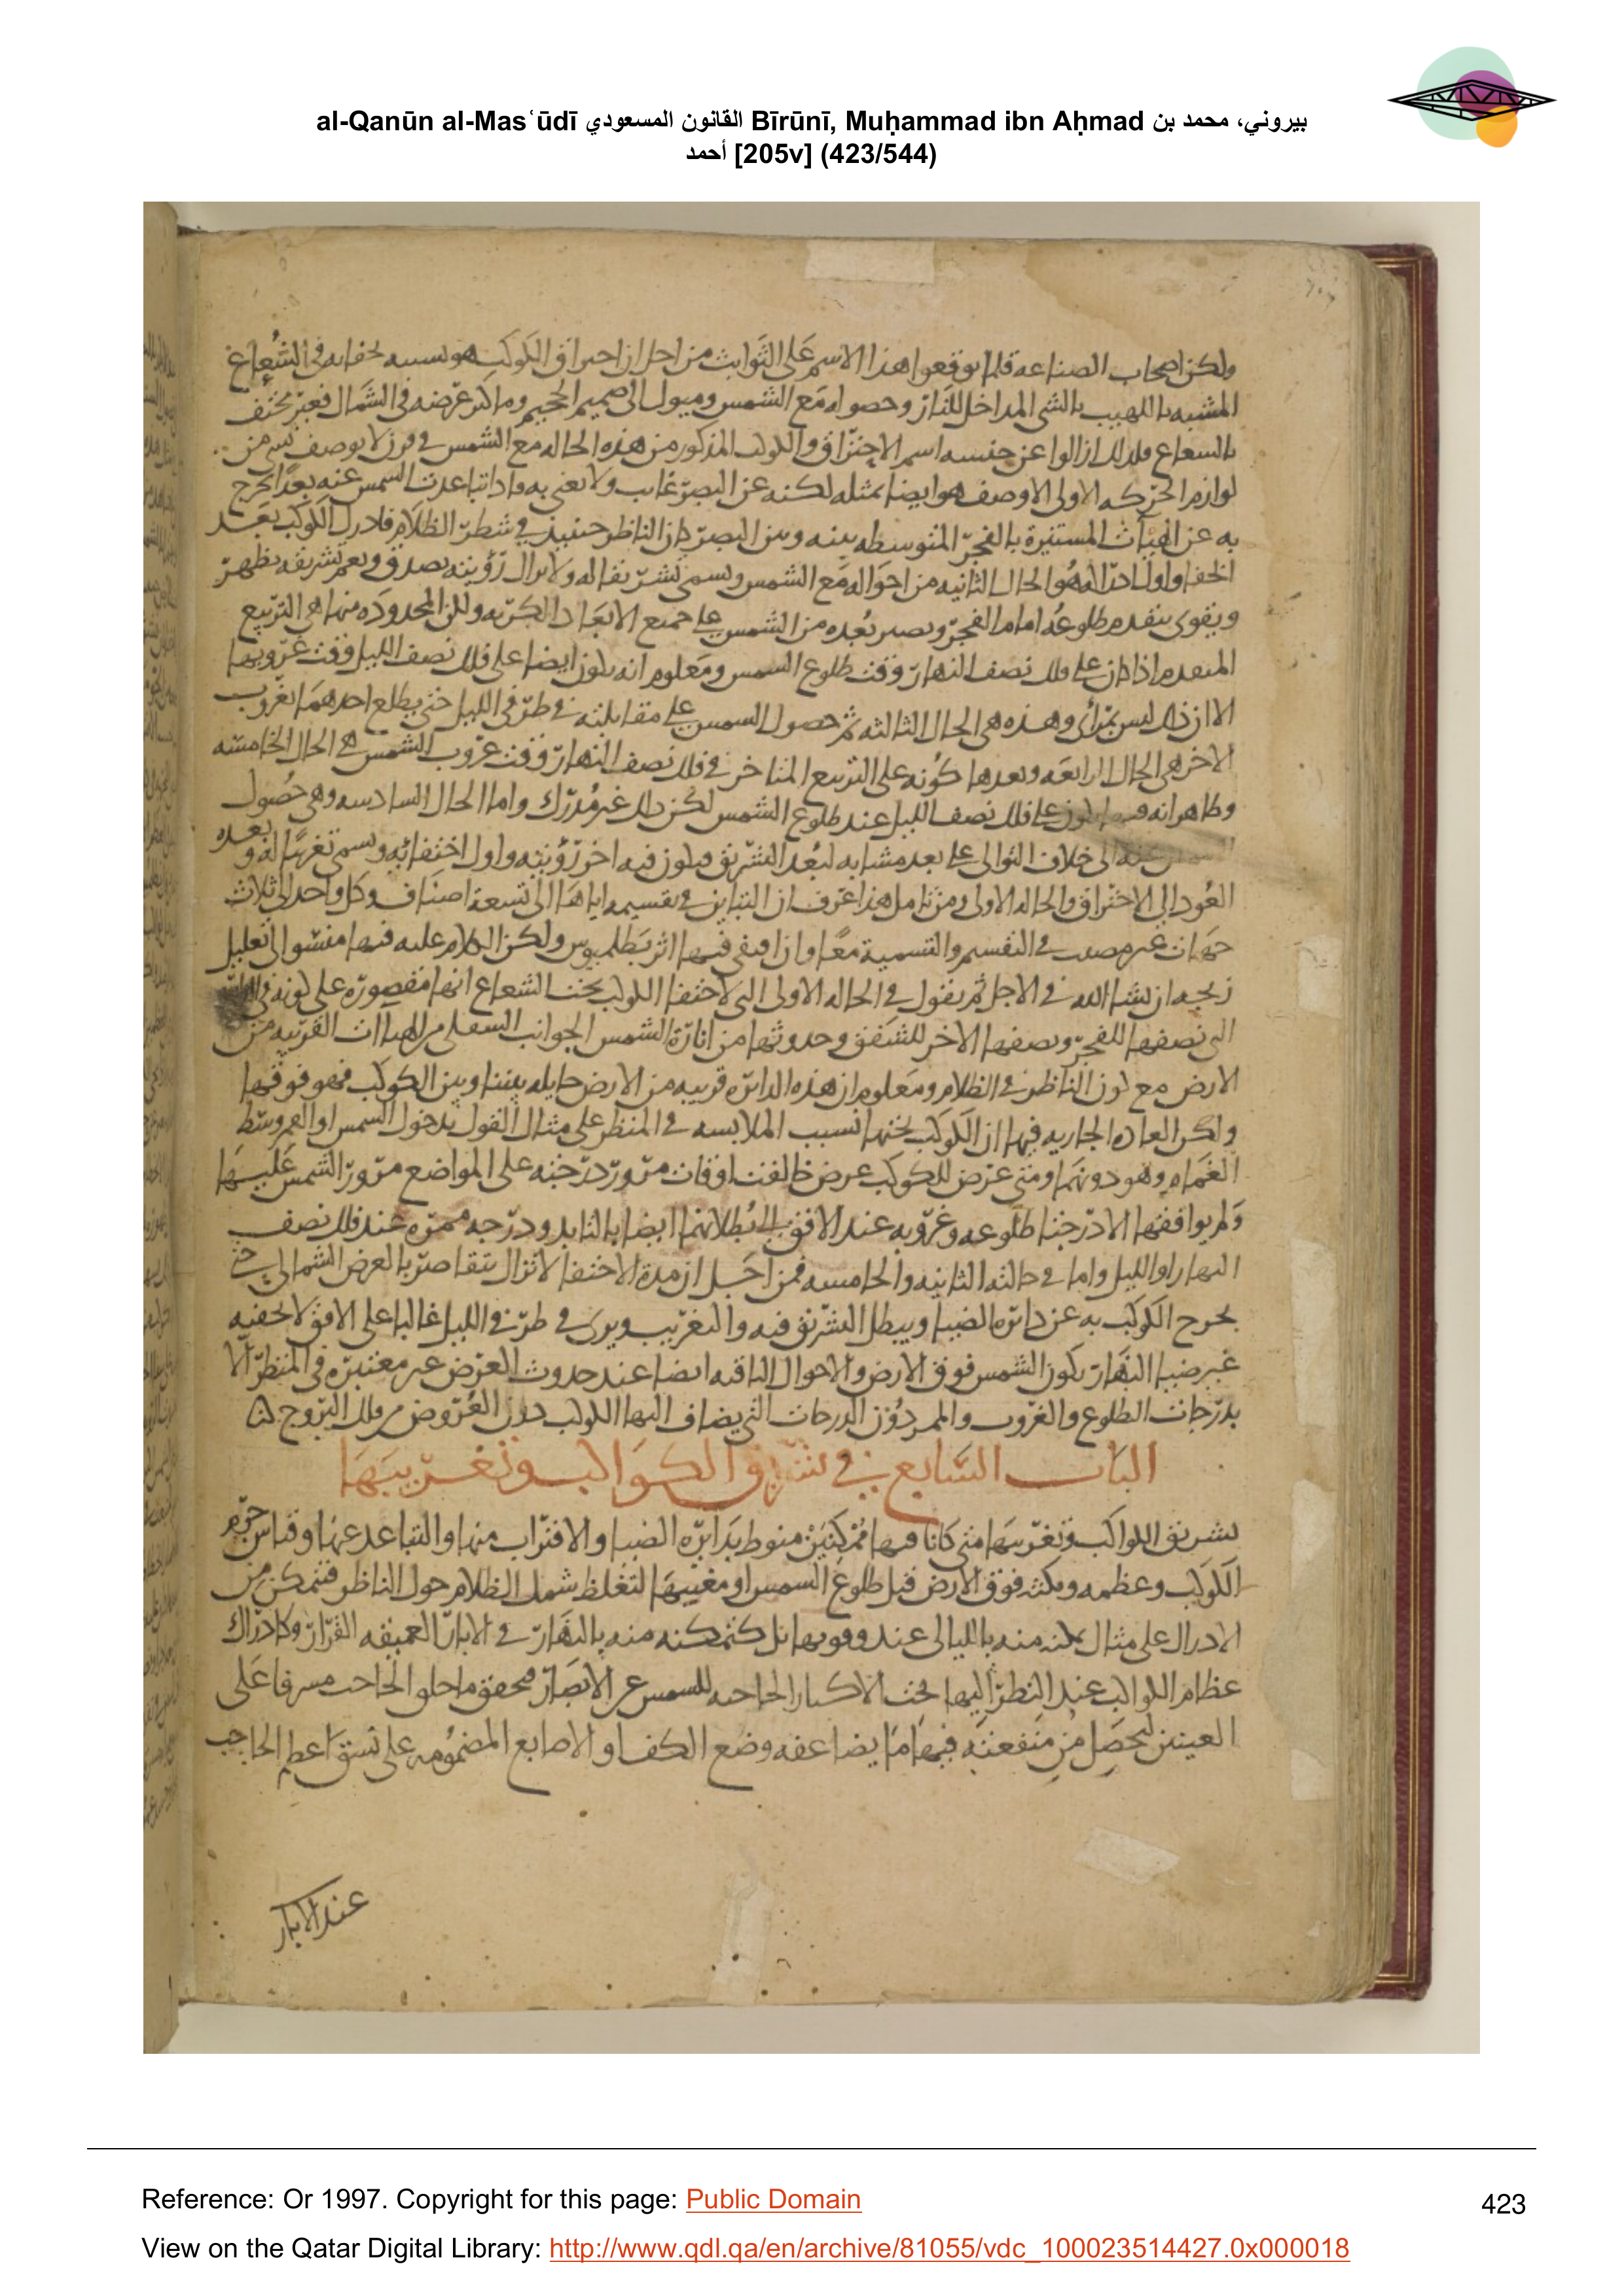 al-Qanūn al-Masʿūdī القانون المسعودي Bīrūnī, Muḥammad ibn Aḥmad بيروني، محمد بن
أحمد [205v] (423/544)
ولكن اصحاب الصناعه قلما يوقعوا هذا الاسم على الثوابت من اجل ان احتراق الكوكب هو تشبيه لخفائه فى الشعاع
المشبه باللهيب بالشى المداخل للنار وحصوله مع الشمس وميول الى صميم الجحيم وما كثر عرضه فى الشمال فغير مختف
بالشعاع فلذلك ازالوا عن جنسه اسم الاحتراق والكوكب المذكور من هذه الحاله مع الشمس فى قرن لا يوصف بشى من
لوازم الحركه الاولى الا وصف هو ايضا بمثله لكنه عن البصر غايب ولا يعنى به فاذا تباعدت الشمس عنه بعدا يخرج
به عن الهبآت المستنيرة بالفجر المتوسطه بينه وبين البصر كان الناظر حينيذ فى شطر الظلام فادرك الكوكب بعد
الخفا واول ادراكه هو الحال الثانيه من احواله مع الشمس ويسمى تشريقا له ولا يزال رؤيته تصدق ونعم تشريقه يظهر
ويقوى بتقدم طلوعه امام الفجر ويصير بعده من الشمس على جميع الابعاد الكريه ولكن المحدوده منها هى التربيع
المتقدم اذا كان على فلك نصف النهار وقت طلوع الشمس ومعلوم انه يكون ايضا على فلك نصف الليل وقت غروبها
الا ان ذلك ليس بمرأى وهذه هى الحال الثالثه ثم حصول الشمس على مقابلته فى طرفى الليل حتى يطلع احدهما بغروب
الاخر هى الحال الرابعه وبعدها كونه على التربيع المتاخر فى فلك نصف النهار وقت غروب الشمس هى الحال الخامسه
وظاهر انه فيها يكون على فلك نصف الليل عند طلوع الشمس لكن ذلك غير مدرك واما الحال السادسه وهى حصول
عنه الى خلاف التوالى على بعد مشابه لبعد التشريق فيكون فيه اخر رؤيته واول اختفائه ويسمى تغريبا له وبعده
العود الى الاحتراق والحاله الاولى ومن تامل هذا عرف ان التباين فى تقسيمه اياها الى تسعة اصناف وكل واحد الى ثلاث
جهات غير مصيب فى التقسيم والتسمية معا وان اقتفى فيها اثر بطلميوس ولكن الكلام عليه فيها منشو الى تعليل
زيجه ان شا الله فى الاجل ثم نقول فى الحاله الاولى التى لاختفا الكوكب تحت الشعاع انها مقصوره على كونه فى
التى نصفها للفجر ونصفها الاخر للشفق وحدوثها من انارة الشمس الجوانب السفلى من الهباات القريبه من
الارض مع كون الناظر فى الظلام ومعلوم ان هذه الدائره قريبه من الارض حايله بيننا وبين الكوكب فهو فوقها
ولكن العاده الجاريه فيها ان الكوكب تحتها بسبب الملابسه فى المنظر على مثال القول بدخول الشمس او القمر وسط
الغمام وهو دونهما ومتى عرض للكوكب عرض خالفت اوقات مرور درجته على المواضع مرور الشمس عليها
ولم يوافقها الا درجتا طلوعه وغروبه عند الافق الى بطلانهما ايضا بالتابد ودرجه ممره عند فلك نصف
النهار او الليل واما فى حالته الثانيه والخامسه فمن اجل ان مدة الاختفا لا تزال تتقاصر بالعرض الشمالى حتى
يخرج الكوكب به عن دائره الضيا ويبطل التشريق فيه والتغريب ويرى فى طرفى الليل غالبا على الافق لا يخفيه
غير ضيا النهار بكون الشمس فوق الارض والاحوال الباقيه ايضا عند حدوث العرض غير معتبره فى المنظر الا
بدرجات الطلوع والغروب والممر دون الدرجات التى يضاف اليها الكوكب دون العروض من فلك البروج
الباب السابع فى تشريق الكواكب وتغريبها
تشريق الكواكب وتغريبها متى كانا فيها ممكنين منوط بدائره الضيا والاقتراب منها والتباعد عنها وقياس جرم
الكوكب وعظمه ومكثه فوق الارض قبل طلوع الشمس او مغيبها لتغلظ شمل الظلام حول الناظر فتمكن من
الادراك على مثال تمكنه منه بالليالى عند وفورها بل كتمكنه منه بالنهار فى الابار العميقه القرار وكادراك
عظام الكواكب عند النظر اليها تحت الاكسار الحاجبه للشمس عن الابصار فحقق ما خلق الحاجب مشرفا على
العينين ليحصل من منفعته فيها ما يضاعفه وضع الكف او الاصابع المضمومه على نسق اعظم الحاجب
عند الابار
Reference: Or 1997. Copyright for this page: Public Domain
423
View on the Qatar Digital Library: http://www.qdl.qa/en/archive/81055/vdc_100023514427.0x000018